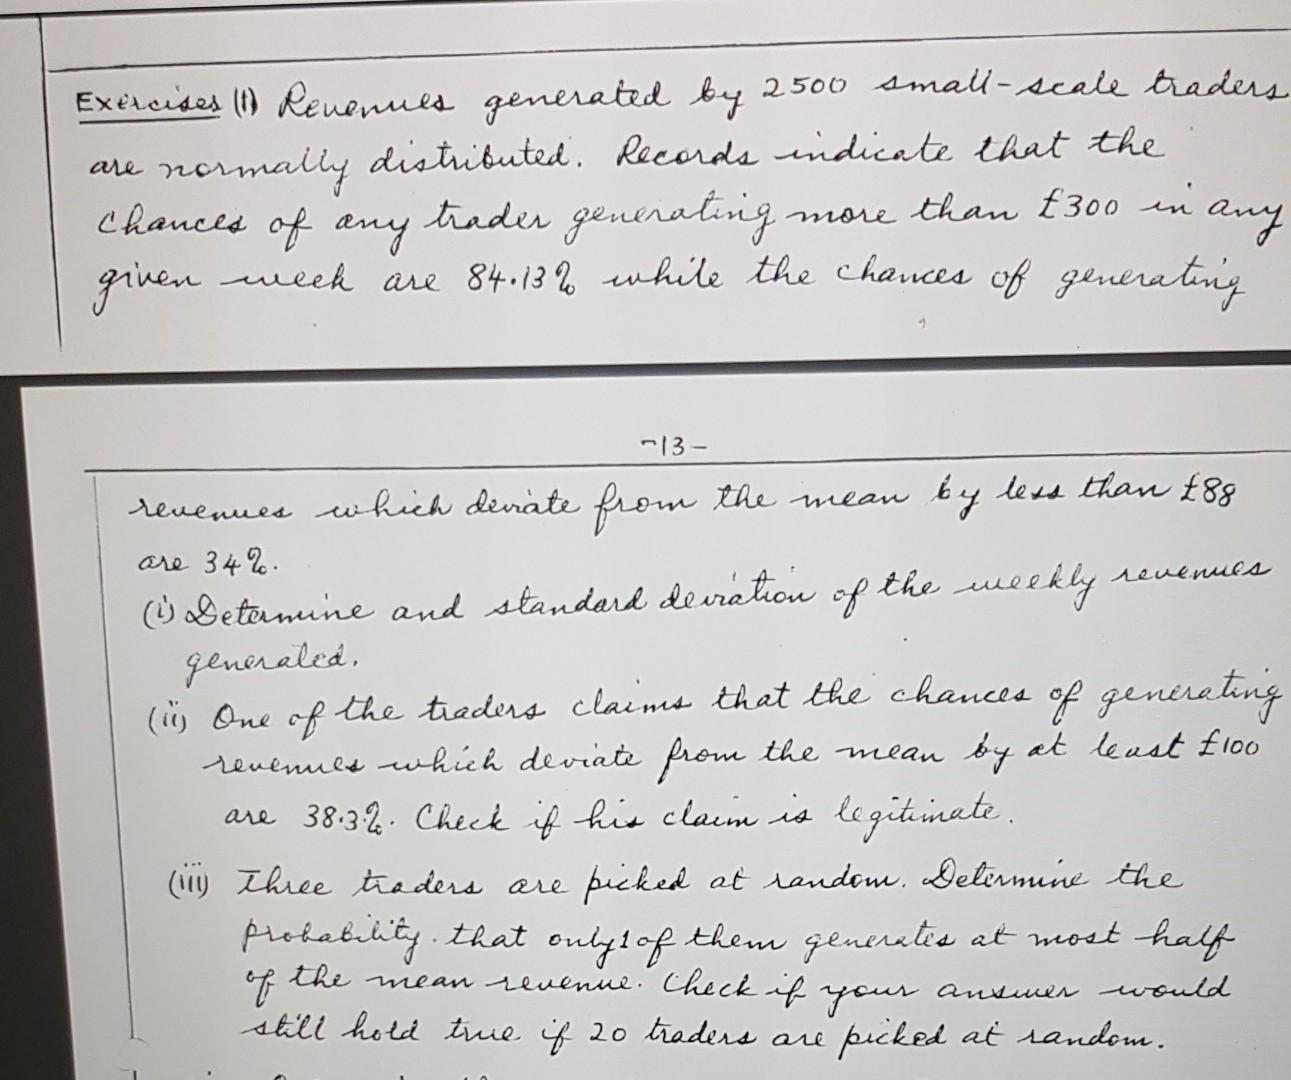 Exercises (1) Revenues generated by 2500 small-scale traders
are normally distributed. Records indicate that the
chances of any trader generating more than £300 in any
given week are 84.13% while the chances of generating
-13-
revenues which deviate from the mean by less than £88
are 34%.
(i) Determine and standard deviation of the weekly revenues
generated.
(ii) One of the traders claims that the chances of generating
revenues which deviate from the mean by at least £100
are 38.3%. Check if his claim is legitimate.
(iii) Three traders are picked at random. Determine the
probability that only 1 of them generates at most half
of the mean revenue. Check if your answer would
still hold true if 20 traders are picked at random.